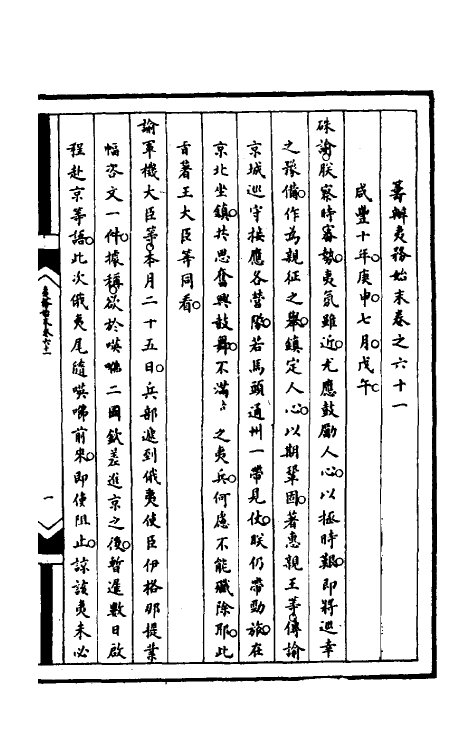 籌辦夷務始末卷之六十一
咸豐十年庚申七月戊午
硃諭朕察時審勢夷氛雖近尤應鼓勵人心以拯時艱即將巡幸
之豫備作為親征之舉鎮定人心以期鞏固著惠親王等傳諭
京城巡守接應各營隊若馬頭通州一帶見仗朕仍帶勁旅在
京北坐鎮共思奮興鼓舞不滿之夷兵何慮不能殲除耶此
旨著王大臣等同看
諭軍機大臣等本月二十五日兵部遞到俄夷使臣伊格那提業
幅咨文一件據稱欲於𠸄咈二國欽差進京之後暫遲數日啟
程赴京等語此次俄夷尾隨𠸄咈前來即使阻止諒該夷未必
夷務始末卷六十一
一